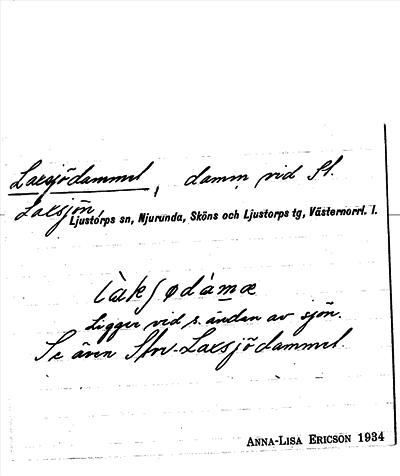 Laxsjödammet, damm vid St.
Laxsjön,
Ljustorps sn, Njurunda, Sköns och Ljustorps tg, Västernorrl. l.
làksødàmæ
Ligger vid s. ändan av sjön.
Se även Stor-Laxsjödammet.
ANNA-LISA ERICSON 1934